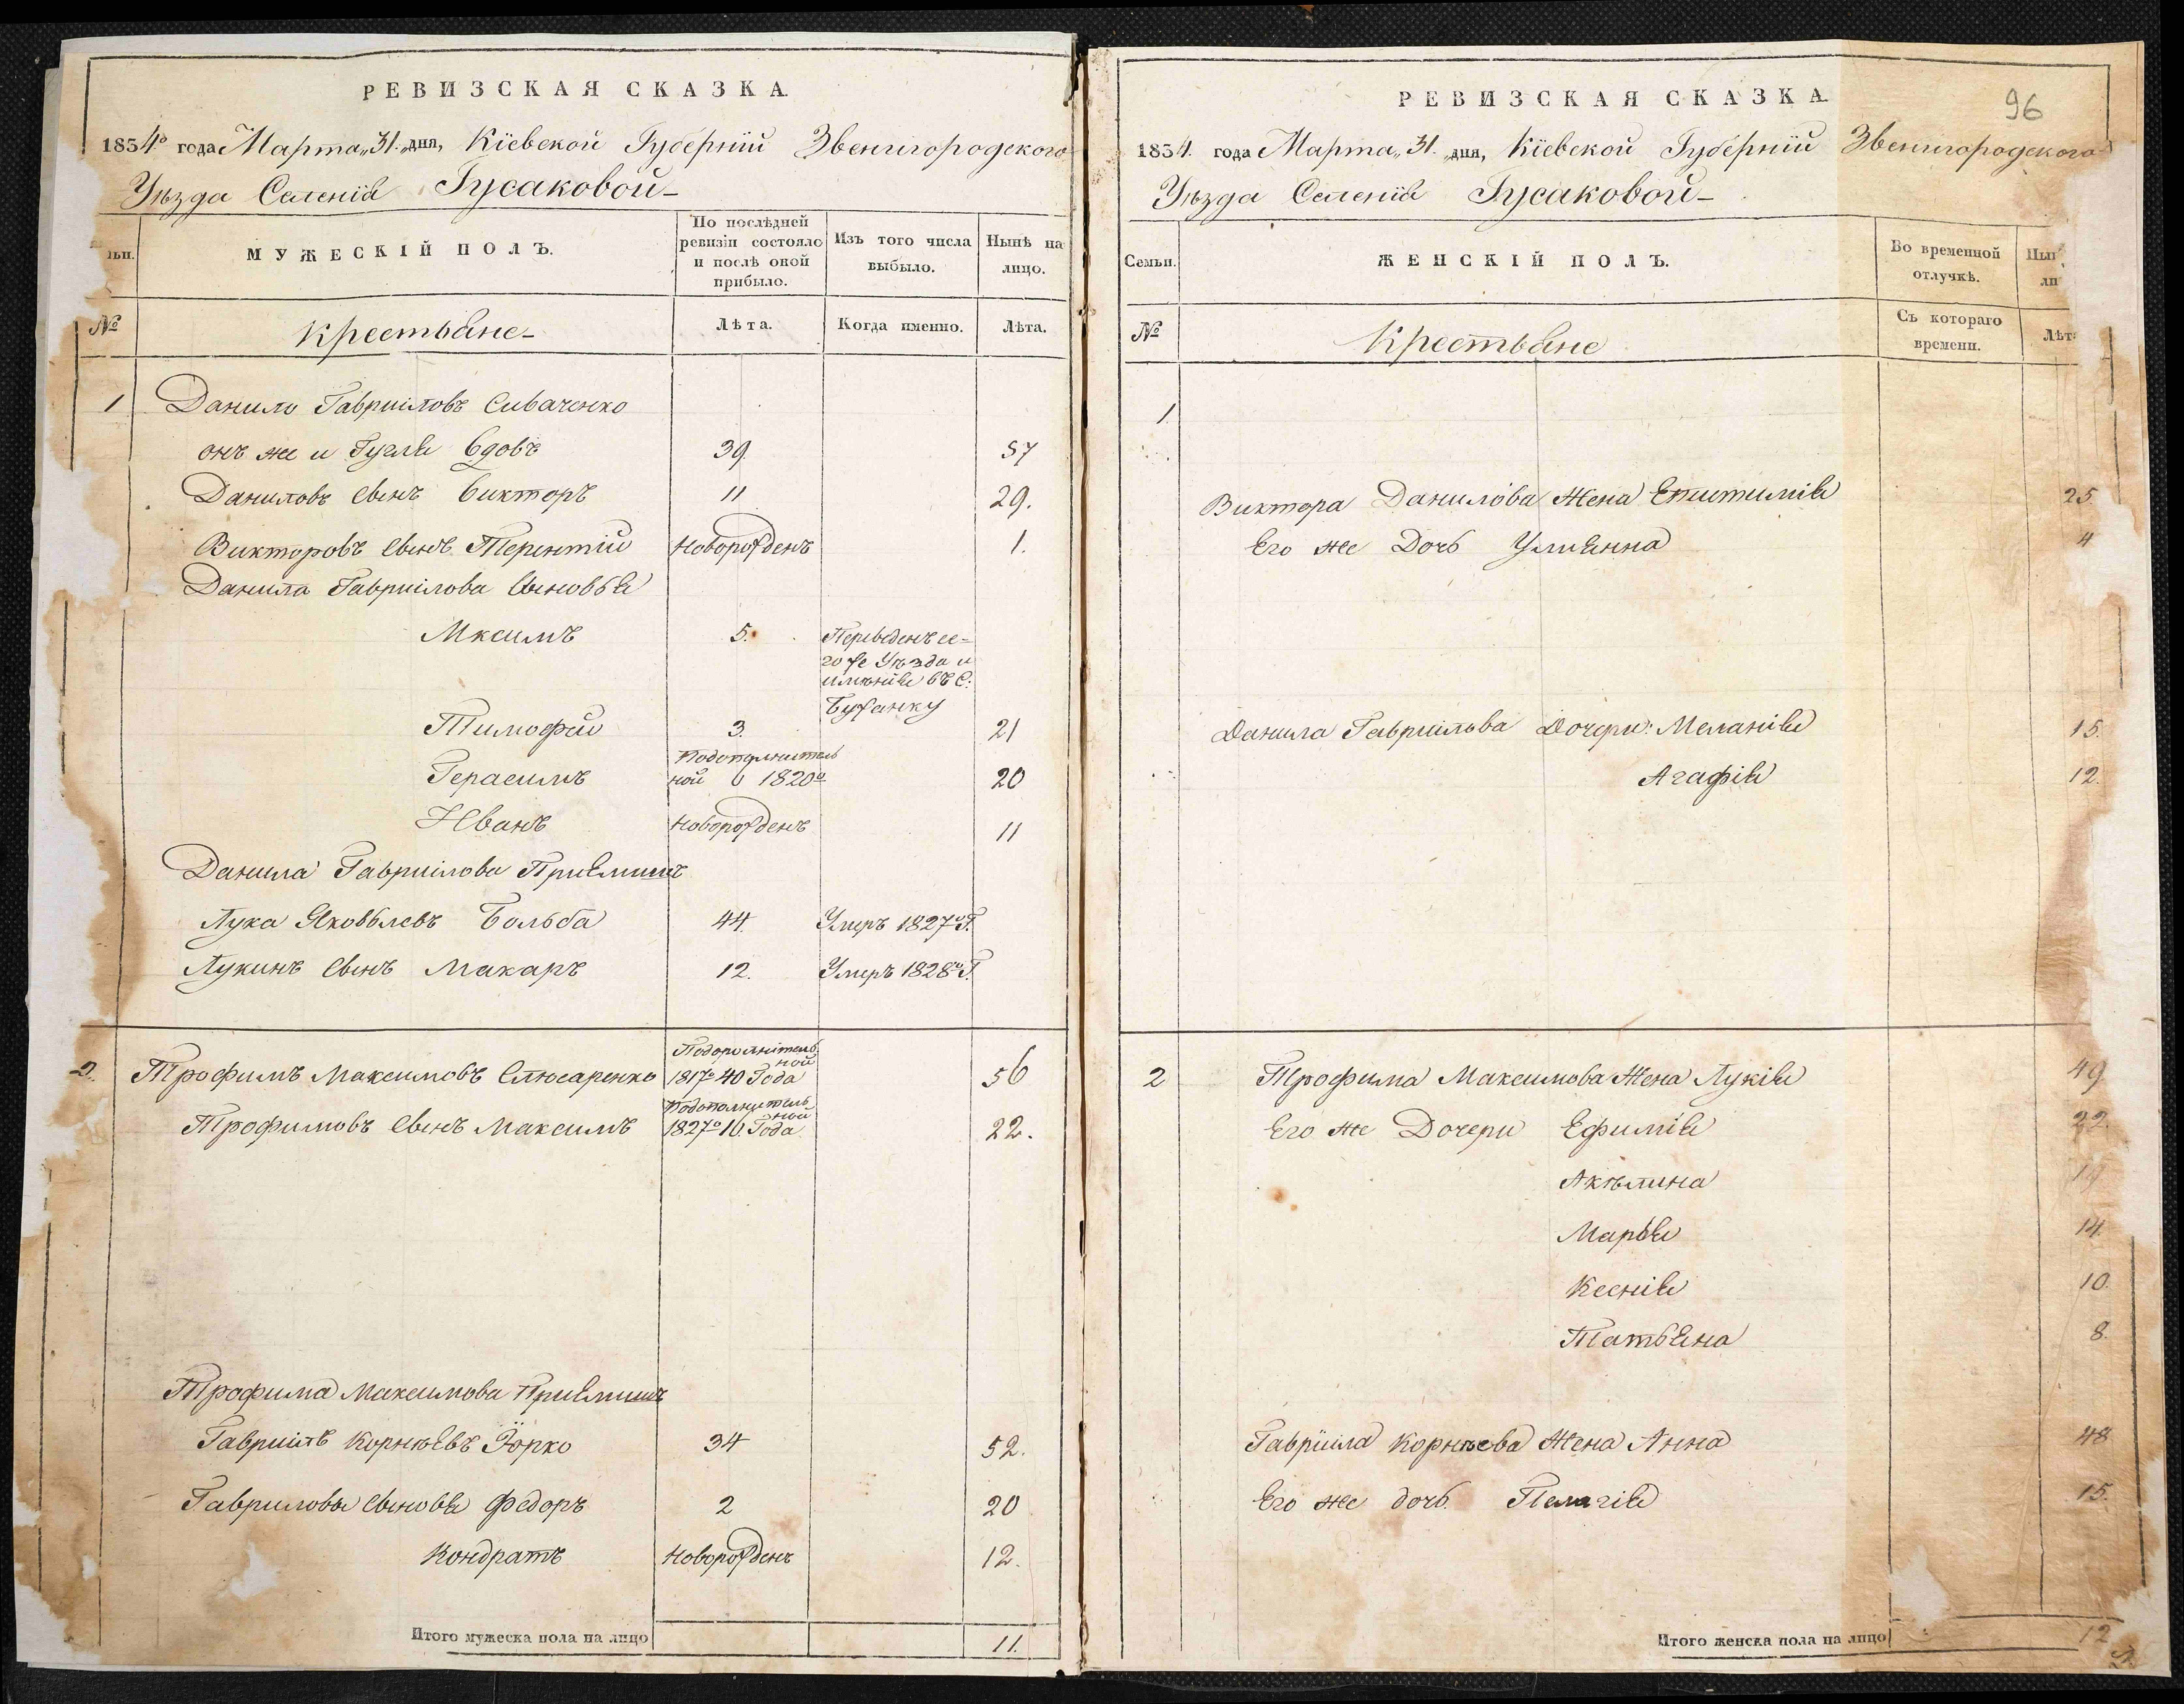 РЕВИЗСКАЯ СКАЗКА
1834го года Марта „31. „дня, Кіевской Губерніи Звенигородского
Уѣзда Селенія Гусаковой
ьи.
МУЖЕСКІЙ ПОЛЪ.
По послѣдней
ревизіи состояло
и послѣ оной
прибыло.
Изъ того числа
выбыло.
Нынѣ на
лицо.
№
Крестьяне
Лѣта.
Когда именно.
Лѣта.
1 Данило Гавриіловъ Сиваченко
онъ же и Вдовъ 39 57
Даниловъ Сынъ Викторъ 11 29.
Викторовъ Сынъ Терентій Новорожденъ 1.
Данила Гавриілова Сыновья
Мксимъ 5. Переведенъ се-
го же Уѣзда и
имѣнія въ С:
Бужанку
Тимофей 3. 21
Подополнитель
Герасимъ ной 1820го 20
Иванъ Новорожденъ 11
Данила Гавриілова Пріемышъ
Лука Яковлевъ Больба 44. Умеръ 1827го Г.
Лукинъ Сынъ Макаръ 12. Умеръ 1828го Г.
Подополнитель
ной
2. Трофимъ Максимовъ Слюсаренко 1817го 40 Года 56
Подополнитель
ной
Трофимовъ Сынъ Максимъ 1827го 16. Года 22.
Трофима Максимова Пріемышъ
Гавріилъ Корнѣевъ 34 52.
Гавриловы Сыновья Федоръ 2 20
Кондратъ Новорожденъ 12.
Итого мужеска пола на лицо 11.
96
РЕВИЗСКАЯ СКАЗКА
1834. года Марта „31. „дня, Кіевской Губерніи Звенигородского
Уѣзда Селенія Гусаковой
Семьи.
ЖЕНСКІЙ ПОЛЪ.
Во временной
отлучкѣ.
Нын
ли
№
Крестьяне
Съ котораго
времени.
Лѣта
1.
Виктора Данилова Жена Епитимія 25
Его же Дочь Ульянна 4
Данила Гавриілова Дочери: Меланія 15.
Агафія 12.
2 Трофима Максимова Жена Лукія 49
Его же Дочери Ефимія 22.
Акѣлина 19
Марья 14.
Ксенія 10.
Татьяна 8.
Гавріила Корнѣева Жена Анна 48
Его же дочь. Пелагія 15.
Итого женска пола на лицо 12